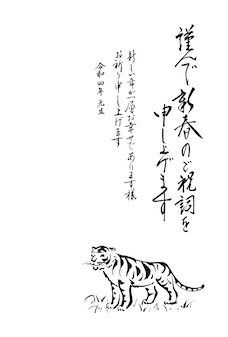 謹んで新春のご祝詞を
申し上げます
新しい年が一層お幸せであります様
お祈り申し上げます
令和四年 元旦